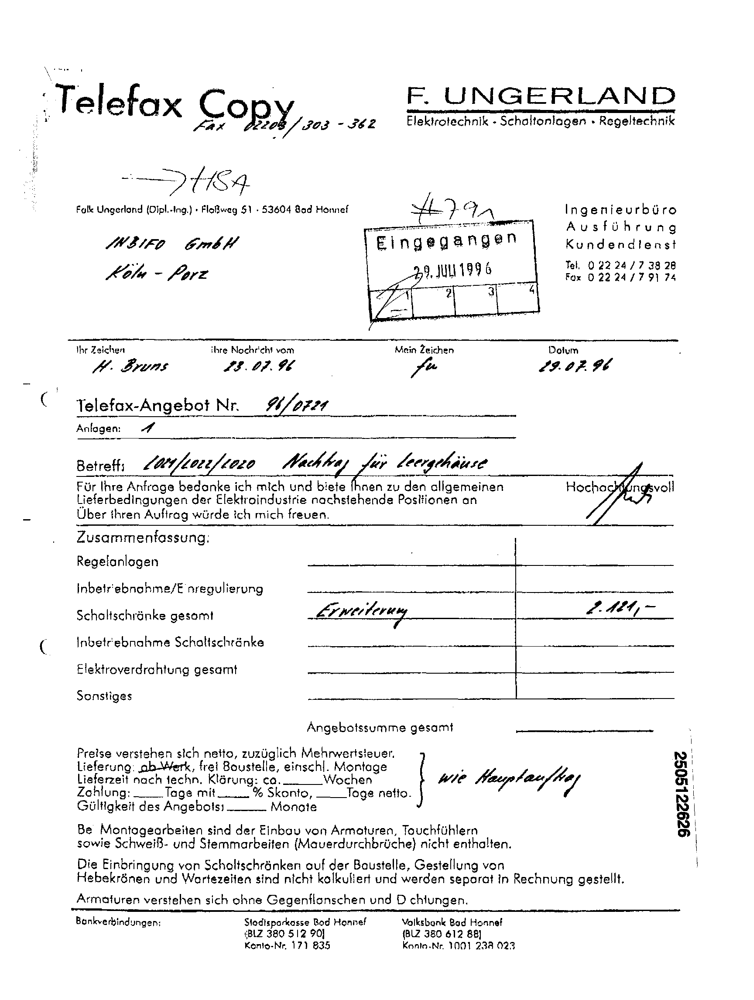 Telefax Copy
F. UNGERLAND
Fax 02203/303 - 362
Elektrotechnik · Schaltanlagen · Regeltechnik
→ HSA
Falk Ungerland (Dipl.-Ing.) · Floßweg 51 · 53604 Bad Honnef
INBIFO GmbH
Köln - Porz
Eingegangen
29. JULI 1996
1 2 3 4
Ingenieurbüro
Ausführung
Kundendienst
Tel. 0 22 24 / 7 38 28
Fax 0 22 24 / 7 91 74
Ihr Zeichen Ihre Nachricht vom Mein Zeichen Datum
H. Bruns 23.07.96 fu 29.07.96
Telefax-Angebot Nr. 96/0721
Anlagen: 1
Betreff: /2022/2020 Nachtrag für Leergehäuse
Für Ihre Anfrage bedanke ich mich und biete Ihnen zu den allgemeinen
Lieferbedingungen der Elektroindustrie nachstehende Positionen an
Über Ihren Auftrag würde ich mich freuen.
Hochachtungsvoll
Zusammenfassung:
Regelanlagen
Inbetriebnahme/E nregulierung
Schaltschränke gesamt Erweiterung 2.121,-
Inbetriebnahme Schaltschränke
Elektroverdrahtung gesamt
Sonstiges
Angebotssumme gesamt
Preise verstehen sich netto, zuzüglich Mehrwertsteuer.
Lieferung: ab Werk, frei Baustelle, einschl. Montage
Lieferzeit nach techn. Klärung: ca. ______ Wochen
Zahlung: ____ Tage mit ____ % Skonto, ____ Tage netto.
Gültigkeit des Angebots: ______ Monate
wie Hauptauftrag
Be Montagearbeiten sind der Einbau von Armaturen, Tauchfühlern
sowie Schweiß- und Stemmarbeiten (Mauerdurchbrüche) nicht enthalten.
Die Einbringung von Schaltschränken auf der Baustelle, Gestellung von
Hebekränen und Wartezeiten sind nicht kalkuliert und werden separat in Rechnung gestellt.
Armaturen verstehen sich ohne Gegenflanschen und D chtungen.
Bankverbindungen: Stadtsparkasse Bad Honnef Volksbank Bad Honnef
(BLZ 380 512 90) (BLZ 380 612 88)
Konto-Nr. 171 835 Konto-Nr. 1001 238 023
2505122626